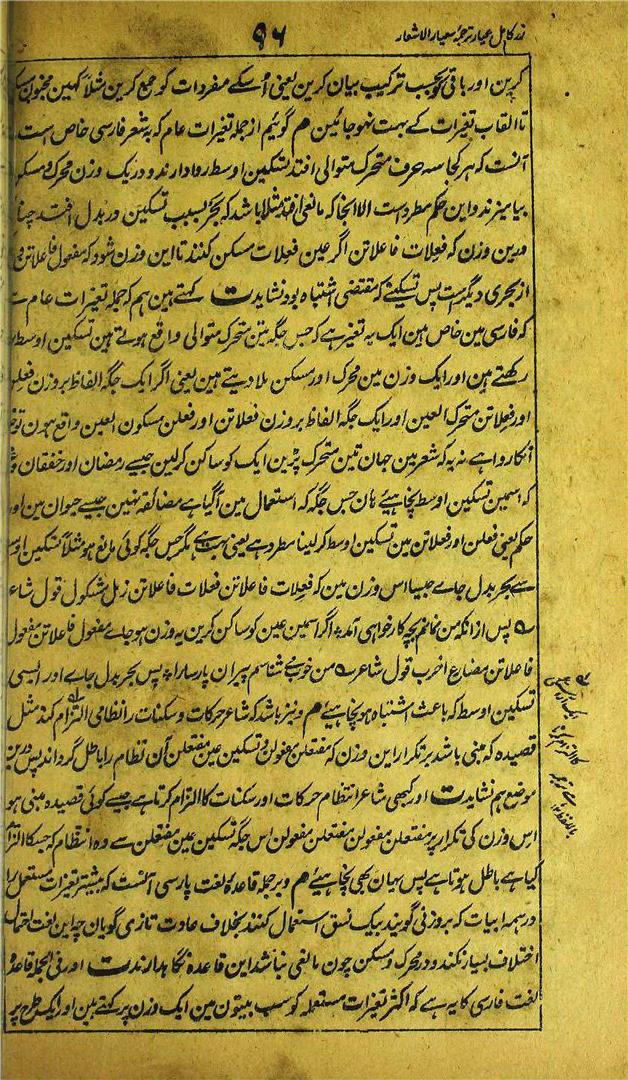 زر کامل عیار ترجمۂ معیار الاشعار
۹۶
کرین اور باقی کو بحسب ترکیب بیان کرین یعنی اُسکے مفردات کو جمع کرین مثلاً کہین مخبون
تا القاب تغیرات کے بہت نہو جائین م گوئیم از جملہ تغیرات عام کہ بہ شعر فارسی خاص است
آنست کہ ہر کجا سہ حرف متحرک متوالی افتد تسکین اوسط روا دارند و در یک وزن محرک و مسکن
بیامیزند و این حکم مطرد است الا آنجا کہ مانعی افتد مثلا باشد کہ بحر بسبب تسکین در بدل افتد
درین وزن کہ فعلات فاعلاتن اگر عین فعلات مسکن کنند تا این وزن شود کہ مفعول فاعلاتن
از بحری دیگر است پس تسکینے کہ مقتضی اشتباہ بود نشاید ت کہتے ہین ہم کہ جملہ تغیرات عام سے
کہ فارسی مین خاص ہین ایک یہ تغیر ہے کہ جس جگہ تین متحرک متوالی واقع ہوتے ہین تسکین اوسط
رکھتے ہین اور ایک وزن مین محرک اور مسکن ملا دیتے ہین یعنی اگر ایک جگہ الفاظ بروزن فعلن
اور فعلاتن متحرک العین اور ایک جگہ الفاظ بروزن فعلاتن اور فعلن مسکون العین واقع ہون تو
انکا روا ہے نہ یہ کہ شعر مین جہان تین متحرک پڑین ایک کو ساکن کر لین جیسے رمضان اور خفقان
کہ اسمین تسکین اوسط نچاہیئے ہان جس جگہ کہ استعمال مین آگیا ہے مضائقہ نہین جیسے حیوان مین اور
حکم یعنی فعلن اور فعلاتن مین تسکین اوسط کر لینا مطرد ہے یعنی ہے مگر جس جگہ کوئی مانع ہو مثلاً تسکین
سے بحر بدل جاے جیسا اس وزن مین کہ فعلات فاعلاتن فعلات فاعلاتن رمل مشکول قول شاعر
ے پس ازانکہ من نمانم بچہ کار خواہی آمد اگر اسمین عین کو ساکن کرین یہ وزن ہو جاے مفعول فاعلاتن مفعول
فاعلاتن مضارع اخرب قول شاعر ے من خوب می شناسم پیران پارسارا پس بحر بدل جاے اور ایسی
تسکین اوسط کہ باعث اشتباہ ہو نچاہیئے م و نیز باشد کہ شاعر حرکات و سکنات را نظامی التزام کند مثل
قصیدہ کہ مبنی باشد بر تکرار این وزن کہ مفتعلن مفعولن و تسکین عین مفتعلن آن نظام را باطل گرداند پس درین
موضع ہم نشاید ت اور کبھی شاعر انتظام حرکات اور سکنات کا التزام کرتا ہے جیسے کوئی قصیدہ مبنی ہو
اس وزن کی تکرار پر مفتعلن مفعولن مفتعلن مفعولن اس جگہ تسکین عین مفتعلن سے وہ انتظام کہ جسکا التزام
کیا ہے باطل ہوتا ہے پس یہان بھی نچاہیئے م و بر جملہ قاعدۂ لغت پارسی آنست کہ بیشتر تغیرات مستعمل را
در ہمہ ابیات کہ بر وزنی گویند بیک نسق استعمال کنند بخلاف عادت تازی گویان چہ این لغت احتمال
اختلاف بسیار نکند و در محرک و مسکن چون مانعی نباشد این قاعدہ نگاہ دارند ت اور فی الجملہ قاعدہ
لغت فارسی کا یہ ہے کہ اکثر تغیرات مستعملہ کو سب بیتون مین ایک وزن پر کہتے ہین اور ایک طرح پر